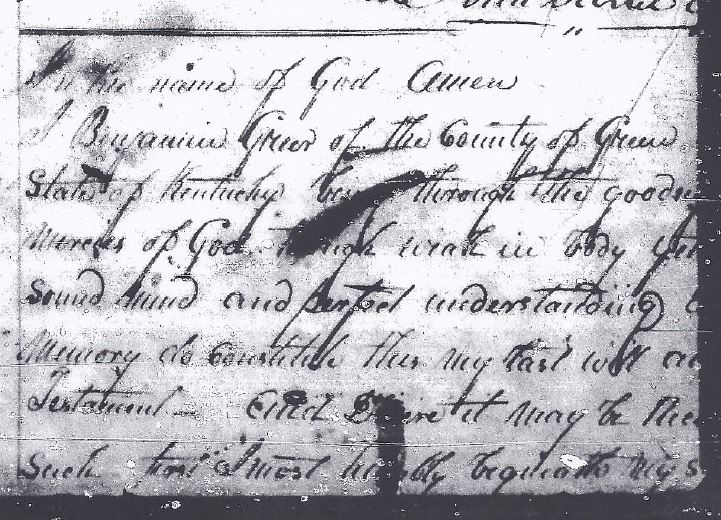 In the name of God Amen
I Benjamin Greer of the County of Green
State of Kentucky being through the goodn
Mercies of God though weak in body yet
Sound mind and perfect understanding
Memory do Constitute this my last will an
Testament and Desire it may be Rec
Such first I most humbly bequeath my s